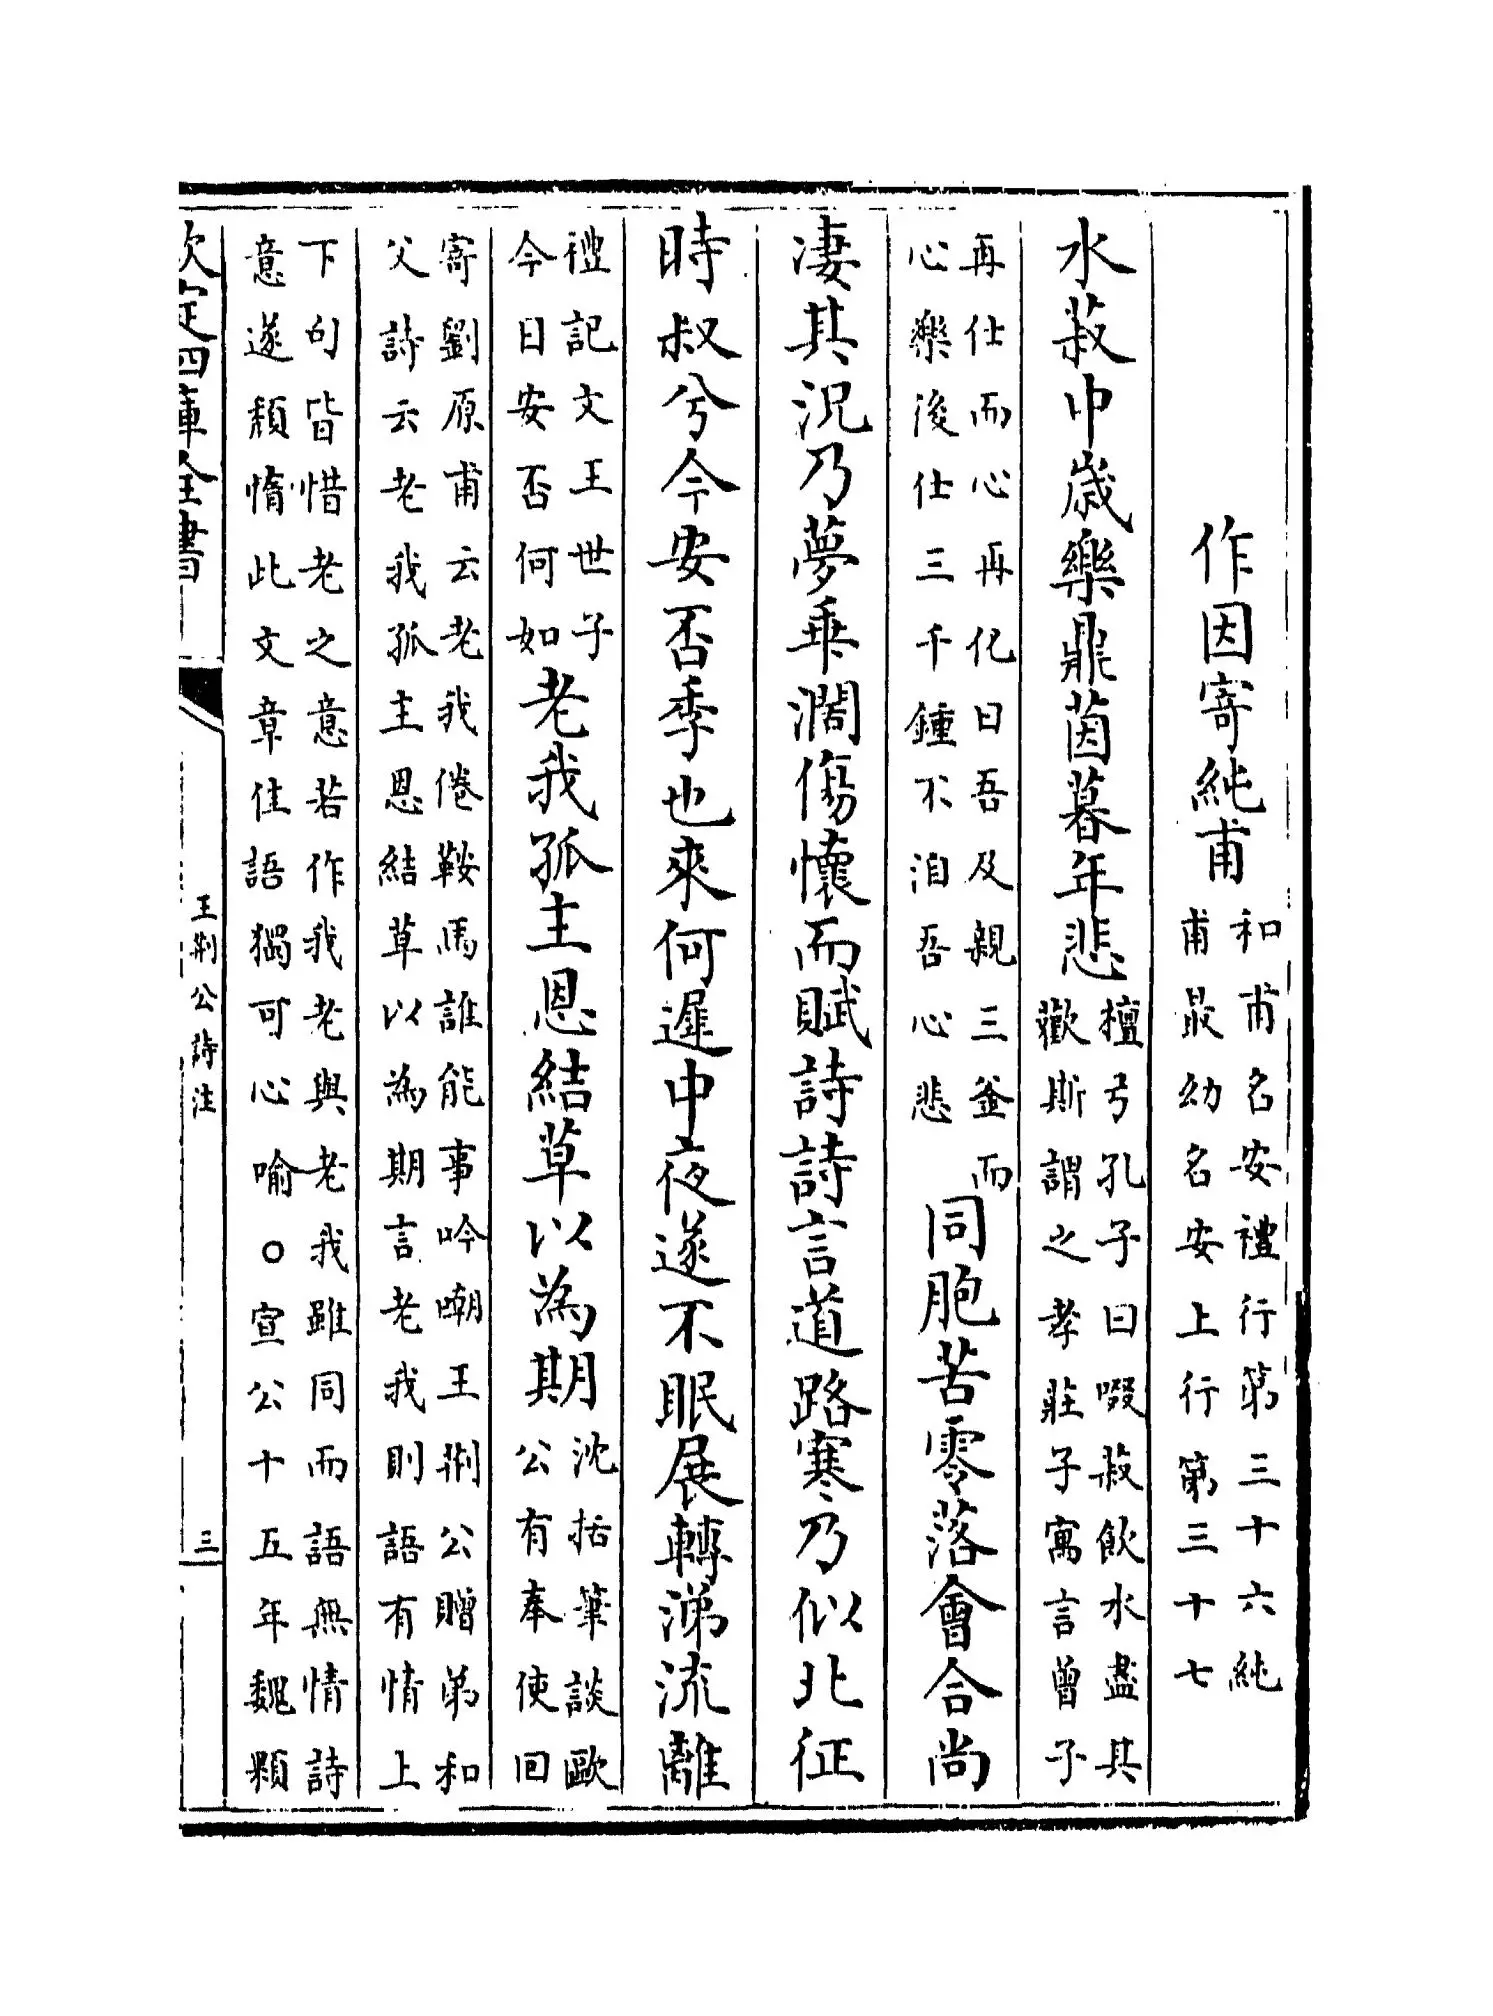 作因寄純甫和甫名安禮行第三十六純
甫最幼名安上行第三十七
水菽中歳樂鼎茵暮年悲檀弓孔子曰啜菽飲水盡其
歡斯謂之孝莊子寓言曾子
再仕而心再化曰吾及親三釜而
心樂後仕三千鍾不洎吾心悲
同胞苦零落會合尚
凄其況乃夢乖濶傷懷而賦詩詩言道路寒乃似北征
時叔兮今安否季也來何遲中夜遂不眠展轉涕流離
禮記文王世子
今日安否何如
老我孤主恩結草以為期沈括筆談歐
公有奉使回
寄劉原甫云老我倦鞍馬誰能事吟嘲王荆公贈弟和
父詩云老我孤主恩結草以為期言老我則語有情上
下句皆惜老之意若作我老與老我雖同而語無情詩
意遂頹惰此文章佳語獨可心喻○宣公十五年魏顆
欽定四庫全書
王荆公詩注
三